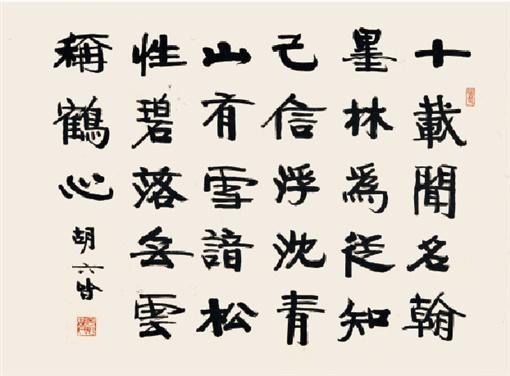 十載聞名翰
墨林為從知
己信浮沈青
山有雪諳松
性碧落無雲
稱鶴心
胡六皆